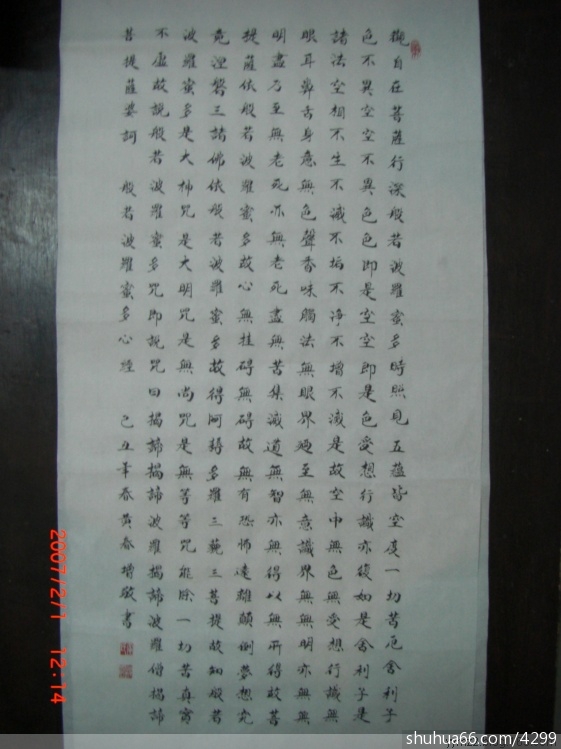 觀自在菩薩行深般若波羅蜜多時照見五蘊皆空度一切苦厄舍利子
色不異空空不異色色即是空空即是色受想行識亦復如是舍利子是
諸法空相不生不滅不垢不净不增不滅是故空中無色無受想行識無
眼耳鼻舌身意無色聲香味觸法無眼界乃至無意識界無無明亦無無
明盡乃至無老死亦無老死盡無苦集滅道無智亦無得以無所得故菩
提薩依般若波羅蜜多故心無挂碍無碍故無有恐怖遠離顛倒夢想究
竟涅磐三諸佛依般若波羅蜜多故得阿耨多羅三藐三菩提故知般若
波羅蜜多是大神咒是大明咒是無尚咒是無等等咒能除一切苦真實
不虛故說般若波羅蜜多咒即說咒曰揭諦揭諦波羅揭諦波羅僧揭諦
菩提薩婆訶 般若波羅蜜多心經 己丑年春黄春增敬書
2007/2/1 12:14
shuhua66.com/4299